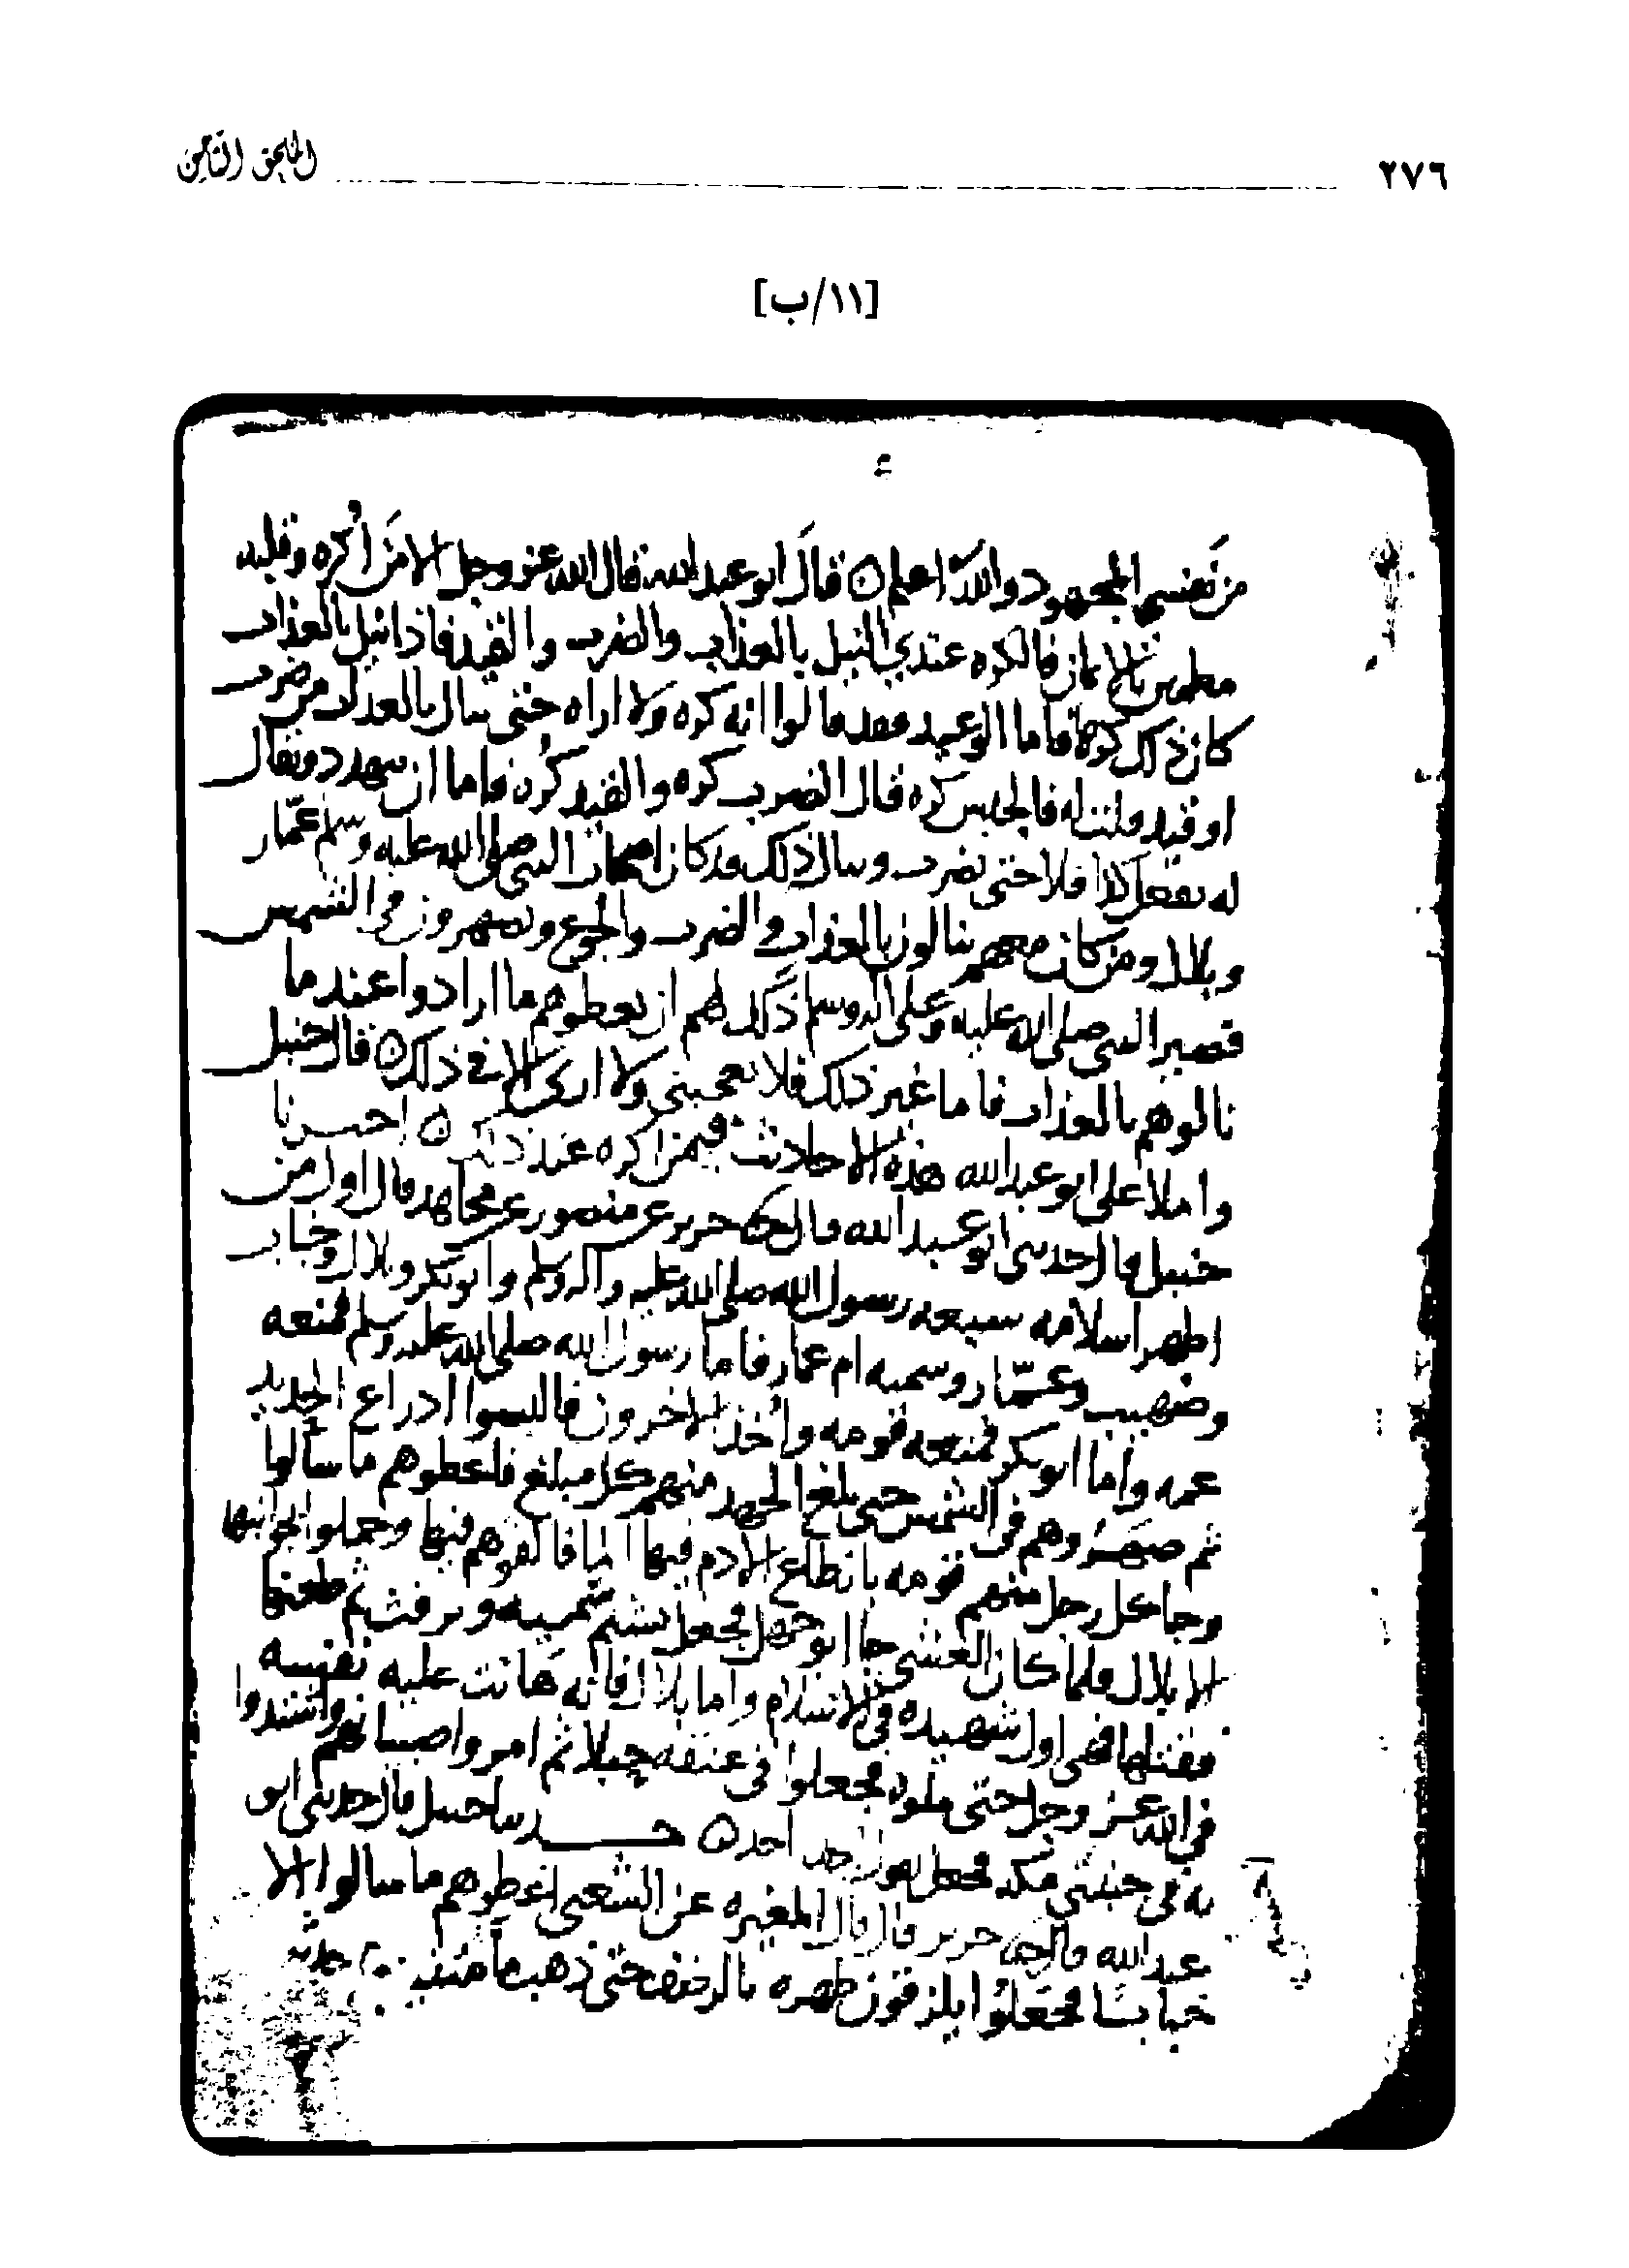 ٢٧٦
الملحق الثامن
[١١/ب]
من نفسه المجهود والله اعلم ه قال ابو عبد الله قال الله عز وجل الا من اكره وقلبه
مطمئن بالايمان فالكره عندي النيل بالعذاب والضرب والقيد فاذا نيل بالعذاب
كان ذلك كرها فاما الوعيد فقد قالوا انه كره ولا اراه حتى ينال بالعذاب من ضرب
او قيد قلت له فالحبس كره قال الضرب كره والقيد كره فاما ان يتهدد ويقال
له نفعل كذا فلا حتى يضرب وينال ذلك قد كان اصحاب النبي صلى الله عليه وسلم عمار
وبلال ومن كان معهم ينالون بالعذاب والضرب والجوع ويصهرون في الشمس
فصير النبي صلى الله عليه وعلى اله وسلم ذلك لهم ان يعطوهم ما ارادوا عند ما
نالوهم بالعذاب فاما غير ذلك فلا يعجبني ولا ارى الا في ذلك ه قال حنبل
واملا علي ابو عبد الله هذه الاحاديث فيمن اكره عند ذلك ه اخبرنا
حنبل قال حدثني ابو عبد الله قال جرير عن منصور عن مجاهد قال اول من
اظهر اسلامه سبعه رسول الله صلى الله عليه واله وسلم وابو بكر وبلال وخباب
وصهيب وعمار وسميه ام عمار فاما رسول الله صلى الله عليه وسلم فمنعه
عمه واما ابو بكر فمنعه قومه واخذ الاخرون فالبسوا ادراع الحديد
ثم صهروهم في الشمس حتى بلغ الجهد منهم كل مبلغ فاعطوهم ما سالوا
وجا كل رجل منهم قومه بانطاع الادم فيها الما فالقوهم فيها وحملوا بجوانبها
الا بلال فلما كان العشي جا ابو جهل فجعل يشتم سميه ويرفث ثم طعنها
فقتلها فهي اول شهيده في الاسلام واما بلال فانه هانت عليه نفسه
في الله عز وجل حتى ملوه فجعلوا في عنقه حبلا ثم امروا صبيانهم فاشتدوا
به في اخشبي مكه فجعل يقول احد احد ه حدثنا حنبل قال حدثني ابو
عبد الله قال جرير قال قال المغيره عن الشعبي اعطوهم ما سالوا الا
خبابا فجعلوا يلزقون ظهره بالرضف حتى ذهب ما